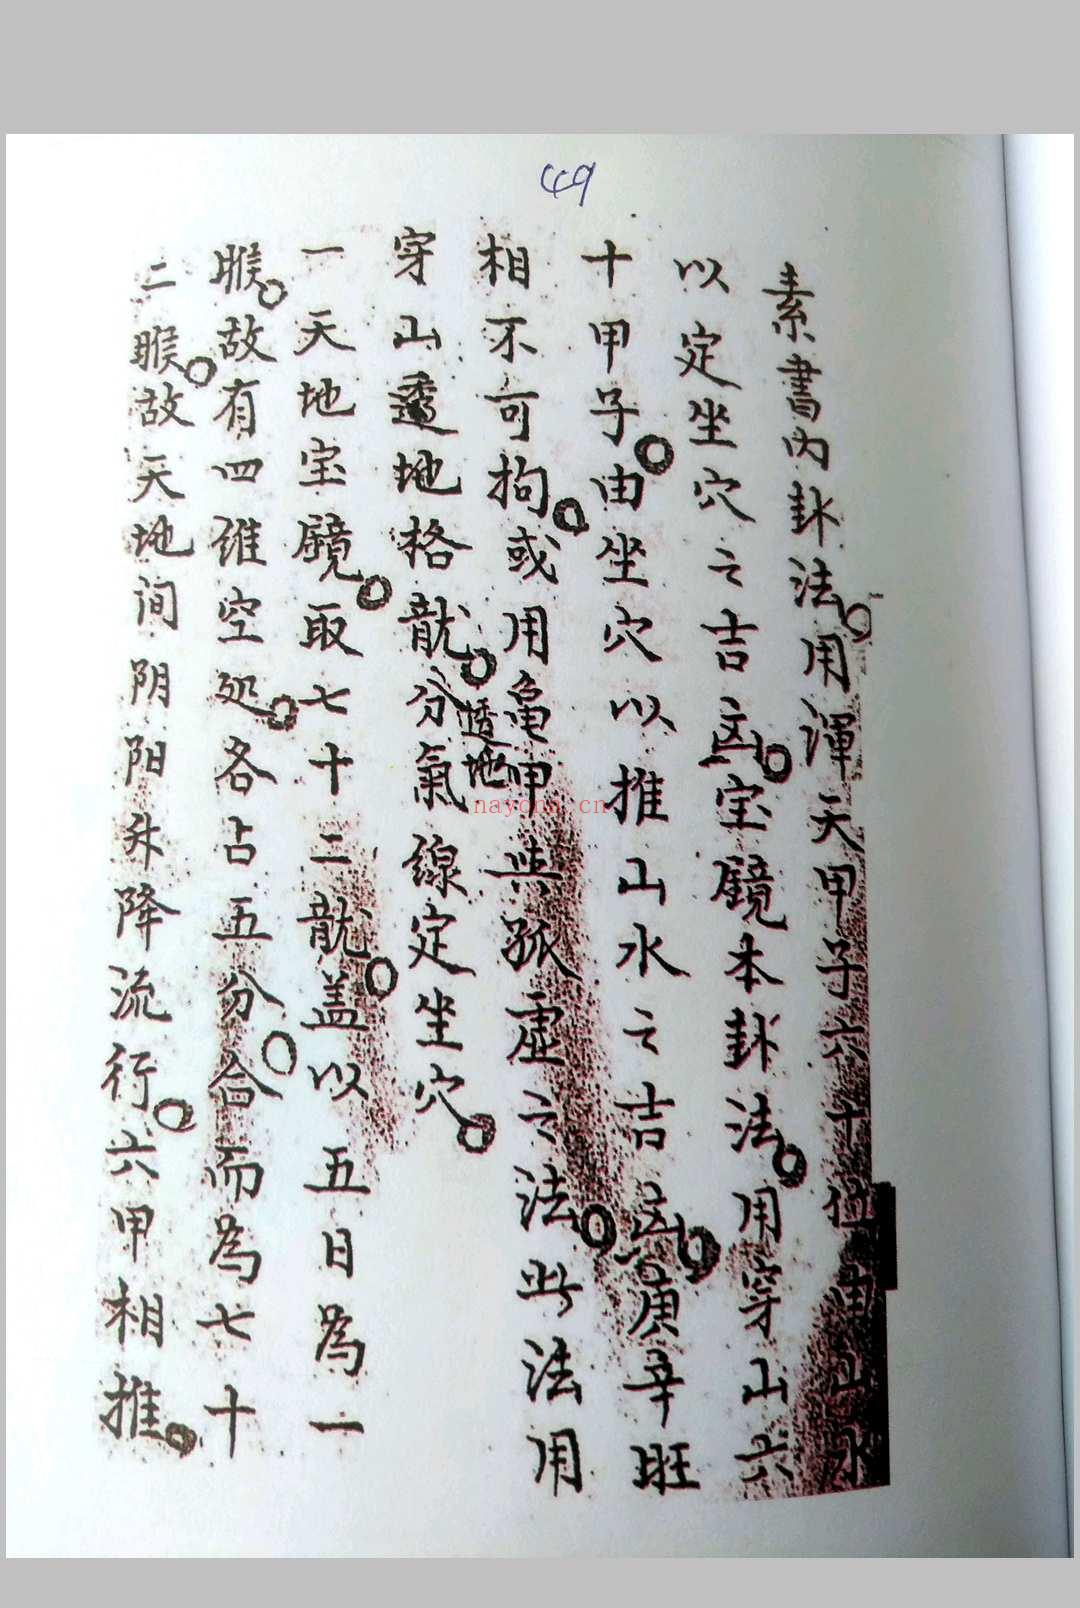 49
素書內卦法。用渾天甲子六十位由山水
以定坐穴之吉凶。宝鏡本卦法。用穿山六
十甲子。由坐穴以推山水之吉凶。庚辛旺
相不可拘。或用龟甲與孤虛之法。此法用
穿山透地格龍。分氣線定坐穴。
透地
一天地宝鏡。取七十二龍。盖以五日為一
睺。故有四维空処。各占五分。合而為七十
二睺。故天地间阴阳升降流行。六甲相推。
nayona.cn